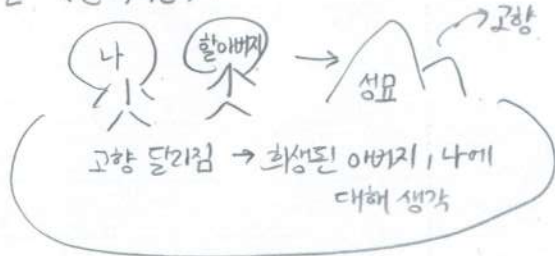 고향
나
할아버지
→
성묘
고향 달라짐 → 희생된 아버지, 나에
대해 생각